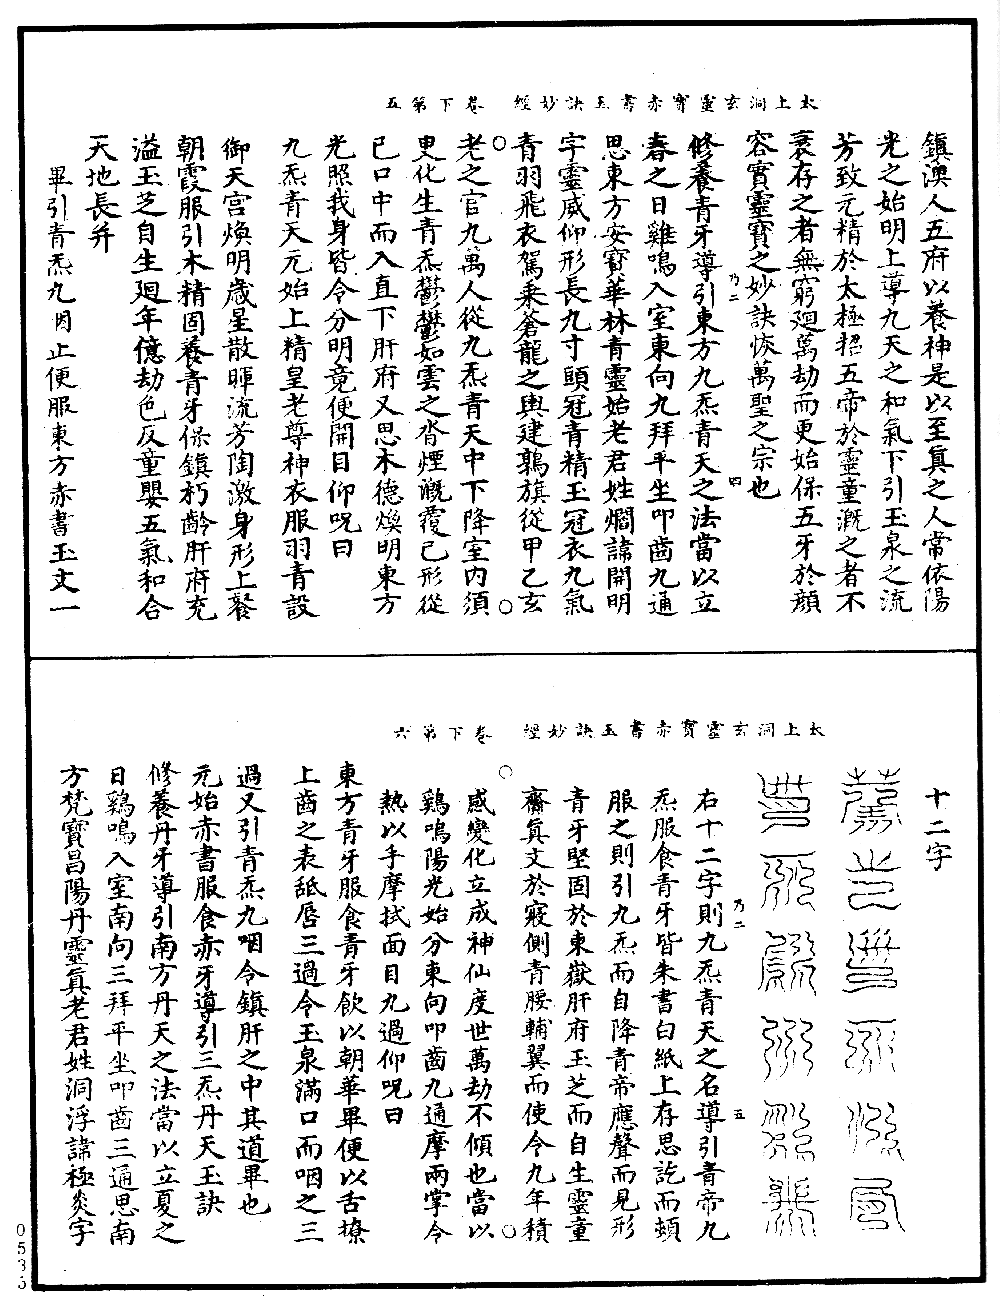 太上洞玄靈寶赤書玉訣妙經 卷下第五
鎮澳人五府以養神是以至真之人常依陽
光之始明上導九天之和氣下引玉泉之流
芳致元精於太極招五帝於靈童溉之者不
衰存之者無窮廻萬劫而更始保五牙於顔
容實靈寶之妙訣恢萬聖之宗也
乃二 四
修養青牙導引東方九炁青天之法當以立
春之日雞鳴入室東向九拜平坐叩齒九通
思東方安寶華林青靈始老君姓閻諱開明
字靈威仰形長九寸頭冠青精玉冠衣九氣
青羽飛衣駕乘蒼龍之輿建鶉旗從甲乙玄
老之官九萬人從九炁青天中下降室内須
臾化生青炁鬱鬱如雲之沓煙溉覆己形從
已口中而入直下肝府又思木德煥明東方
光照我身皆令分明竟便開目仰呪曰
九炁青天元始上精皇老尊神衣服羽青設
御天宫煥明歲星散暉流芳陶激身形上餐
朝霞服引木精固養青牙保鎮朽齡肝府充
溢玉芝自生廻年億劫色反童嬰五氣和合
天地長并
畢引青炁九咽止便服東方赤書玉文一
太上洞玄靈寶赤書玉訣妙經 卷下第六
十二字
右十二字則九炁青天之名導引青帝九
乃二 五
炁服食青牙皆朱書白紙上存思訖而頓
服之則引九炁而自降青帝應聲而見形
青牙堅固於東嶽肝府玉芝而自生靈童
齋真文於寢側青腰輔翼而使令九年積
感變化立成神仙度世萬劫不傾也當以
鷄鳴陽光始分東向叩齒九通摩兩掌令
熱以手摩拭面目九過仰呪曰
東方青牙服食青牙飲以朝華畢便以舌撩
上齒之表舐唇三過令玉泉滿口而咽之三
過又引青炁九咽令鎮肝之中其道畢也
元始赤書服食赤牙導引三炁丹天玉訣
修養丹牙導引南方丹天之法當以立夏之
日鷄鳴入室南向三拜平坐叩齒三通思南
方梵寶昌陽丹靈真老君姓洞浮諱極炎字